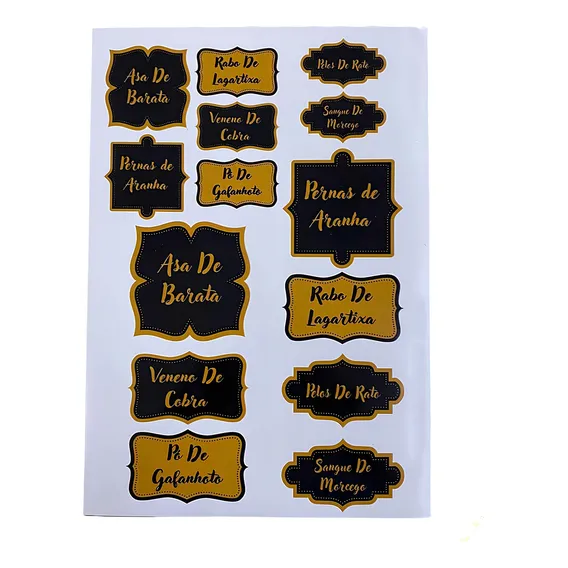 Asa De
Barata
Rabo De
Lagartixa
Pêlos De Rato
Veneno De
Cobra
Sangue De
Morcego
Pernas de
Aranha
Pó De
Gafanhoto
Pernas de
Aranha
Asa De
Barata
Rabo De
Lagartixa
Veneno De
Cobra
Pêlos De Rato
Pó De
Gafanhoto
Sangue De
Morcego